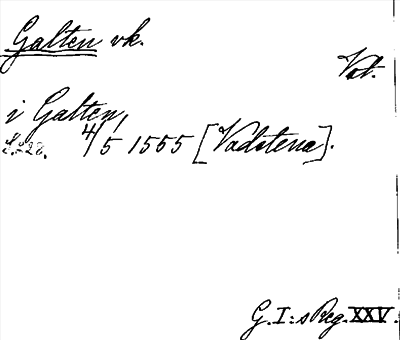 Galten vk.
Vat.
i Galten,
S. 228. 4/5 1555 [Vadstena].
G. I:s Reg. XXV.